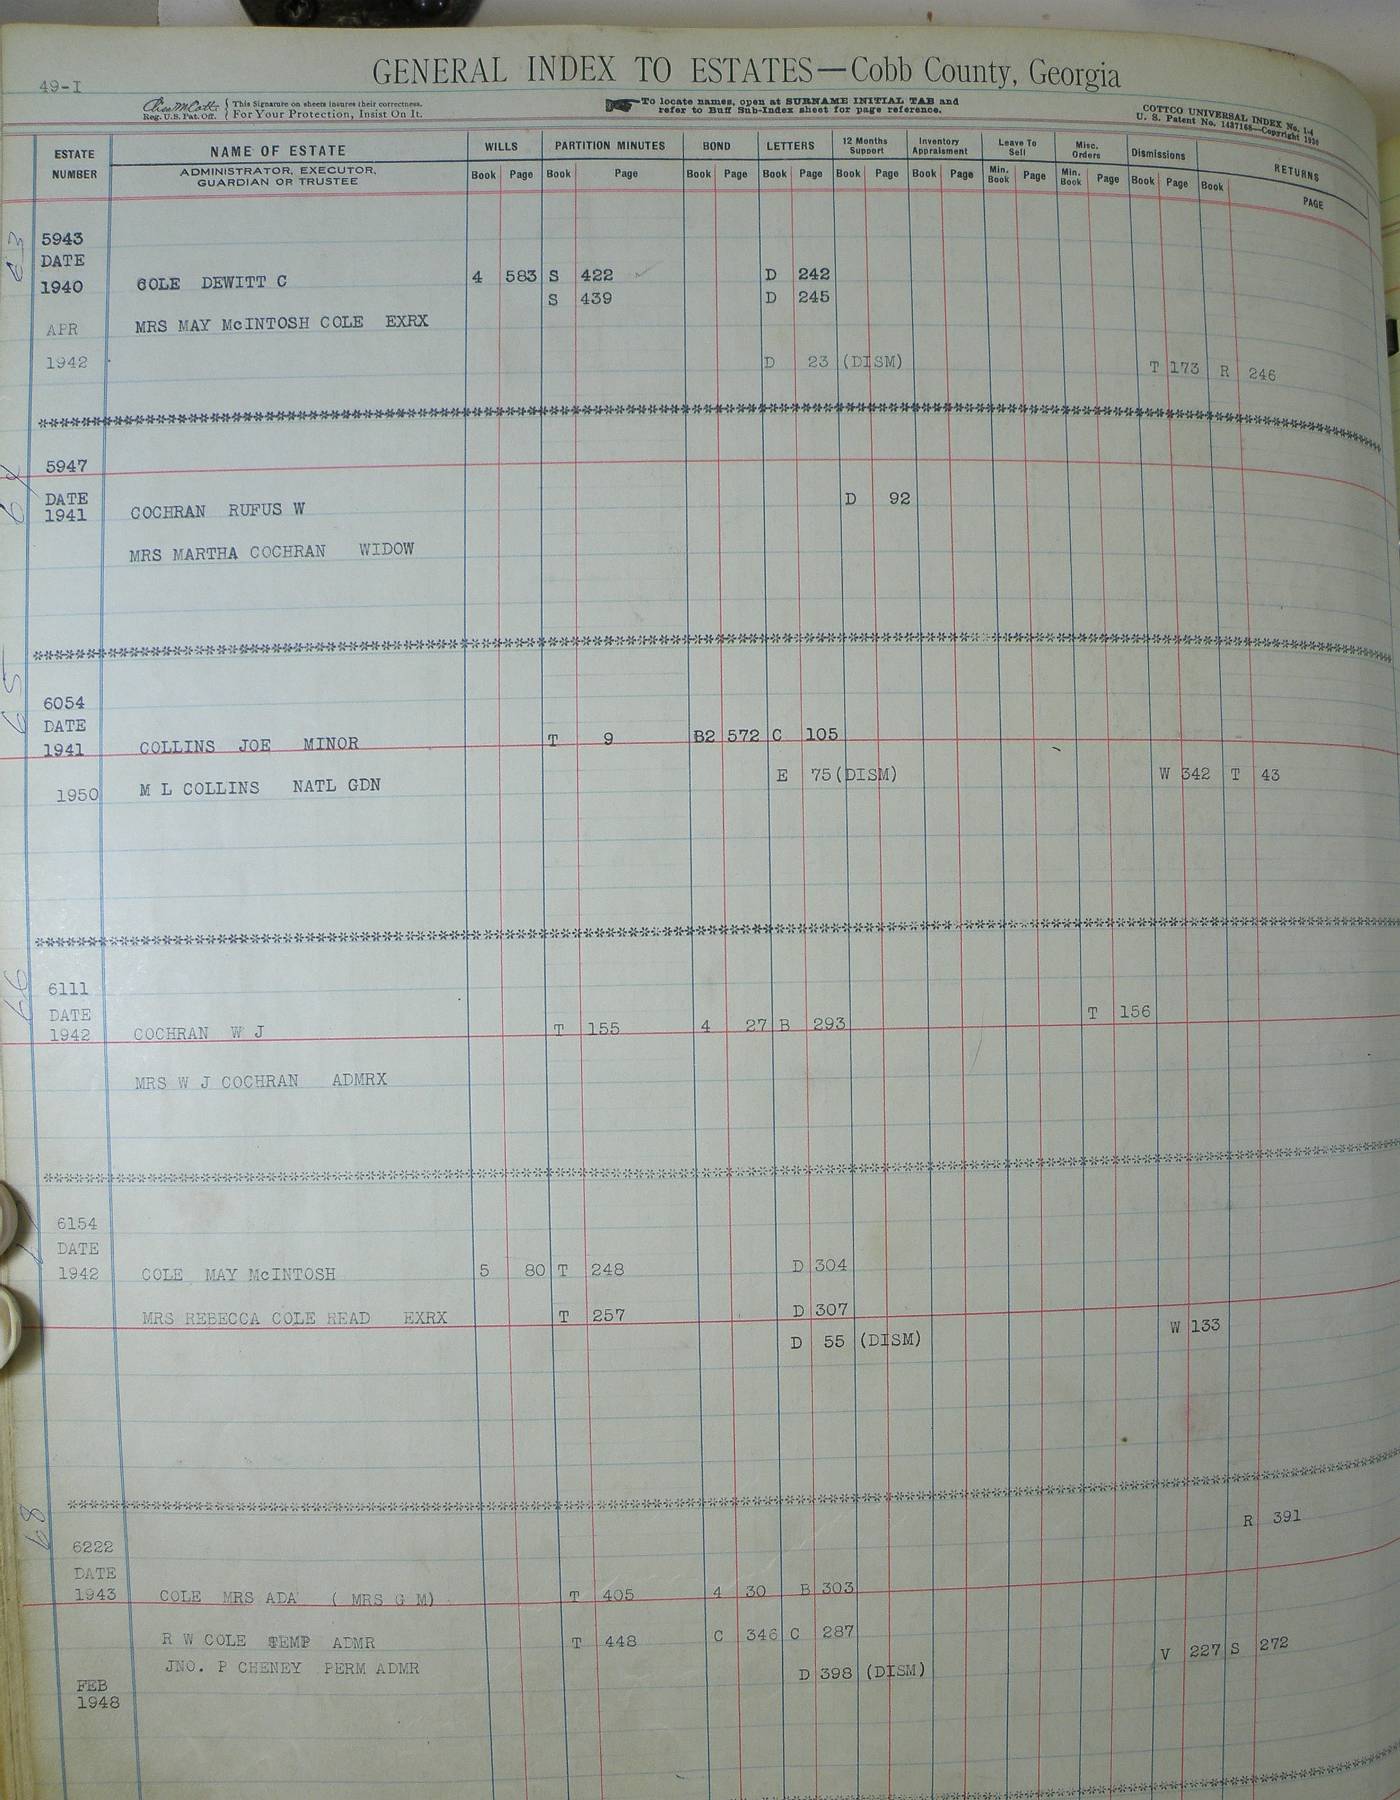 49-I
GENERAL INDEX TO ESTATES—Cobb County, Georgia
Reg. U.S. Pat. Off. { This Signature on sheets insures their correctness. For Your Protection, Insist On It.
To locate names, open at SURNAME INITIAL TAB and
refer to Buff Sub-Index sheet for page reference.
COTTCO UNIVERSAL INDEX No. 1-4
U. S. Patent No. 1437168—Copyright 1930
ESTATE NUMBER NAME OF ESTATE WILLS PARTITION MINUTES BOND LETTERS 12 Months Support Inventory Appraisment Leave To Sell Misc. Orders Dismissions RETURNS
ADMINISTRATOR, EXECUTOR, GUARDIAN OR TRUSTEE Book Page Book Page Book Page Book Page Book Page Book Page Min. Book Page Min. Book Page Book Page Book PAGE
63
5943
DATE
1940 COLE DEWITT C 4 583 S 422 D 242
S 439 D 245
APR MRS MAY McINTOSH COLE EXRX
1942 D 23 (DISM) T 173 R 246
64
5947
DATE D 92
1941 COCHRAN RUFUS W
MRS MARTHA COCHRAN WIDOW
65
6054
DATE
1941 COLLINS JOE MINOR T 9 B2 572 C 105
E 75 (DISM) W 342 T 43
1950 M L COLLINS NATL GDN
66
6111
DATE
1942 COCHRAN W J T 155 4 27 B 293 T 156
MRS W J COCHRAN ADMRX
6154
DATE
1942 COLE MAY McINTOSH 5 80 T 248 D 304
MRS REBECCA COLE READ EXRX T 257 D 307
D 55 (DISM) W 133
68
R 391
6222
DATE
1943 COLE MRS ADA ( MRS G M) T 405 4 30 B 303
R W COLE TEMP ADMR T 448 C 346 C 287
JNO. P CHENEY PERM ADMR D 398 (DISM) V 227 S 272
FEB
1948